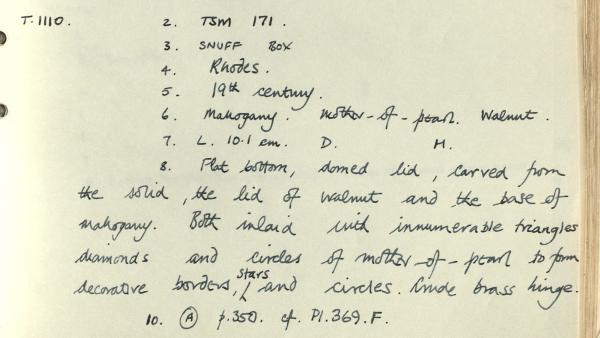 T.1110. 2. TSM 171.
3. SNUFF BOX
4. Rhodes.
5. 19th century.
6. Mahogany. Mother-of-pearl. Walnut.
7. L. 10.1 cm. D. H.
8. Flat bottom, domed lid, carved from
the solid, the lid of walnut and the base of
mahogany. Both inlaid with innumerable triangles
diamonds and circles of mother-of-pearl to form
decorative borders, stars and circles. Crude brass hinge.
10. A p.350. cf. Pl.369.F.